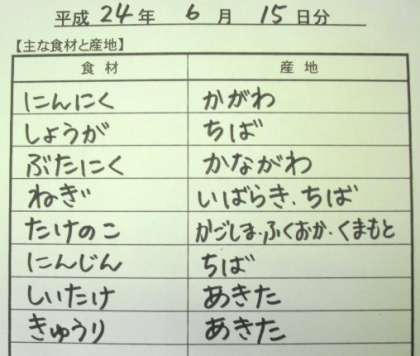 平成 24 年 6 月 15 日分
【主な食材と産地】
食材 産地
にんにく かがわ
しょうが ちば
ぶたにく かながわ
ねぎ いばらき、ちば
たけのこ かごしま・ふくおか・くまもと
にんじん ちば
しいたけ あきた
きゅうり あきた